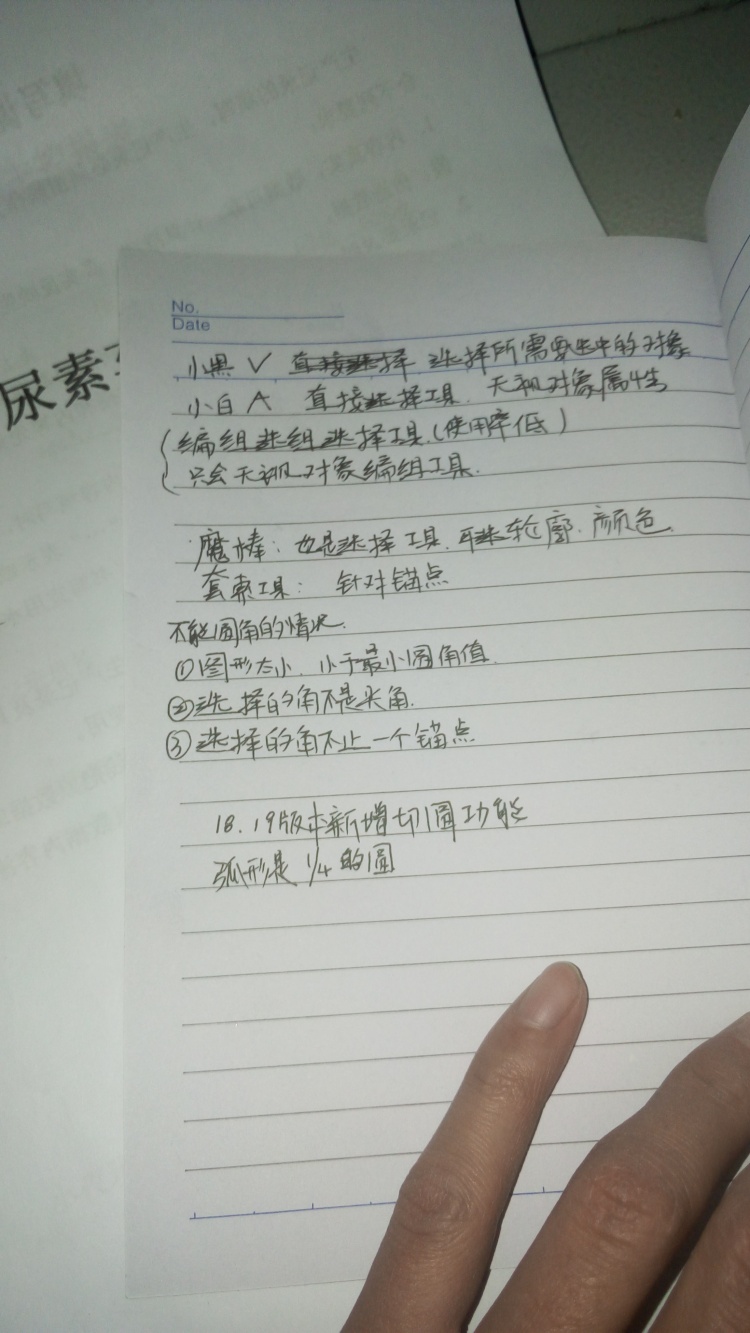 No.
Date
尿素
小黑 V 直接选择 选择所需要选中的对象
小白 A 直接选择工具. 无视对象属性
编组选组选择工具.(使用率低)
只会无视对象编组工具.
魔棒: 也是选择工具. 选轮廓. 颜色.
套索工具: 针对锚点
不能圆角的情况.
①图形太小. 小于最小圆角值.
②选择的角不是尖角.
③选择的角不止一个锚点
18. 19版本新增切圆功能
弧形是 1/4 的圆